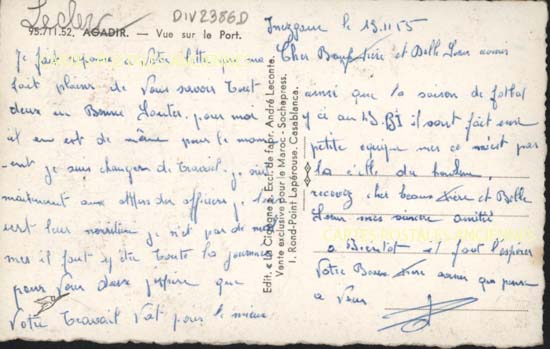 Leclerc
DIV2386D
95.711.52. AGADIR. — Vue sur le Port.
Je fait reponse a Votre lettre que me
fait plaisir de Vous savoir tout
deux en Bonne Santer. pour moi
il en est de même pour le mom
ent je suis changer de travail. je
maintenant aux des officiers je
sert leur nourriture je n'est pas de mal
mes il faut y être toute la journee
pour Vous deux j'espère que
Votre travail Vat pour le mieux
Edit. « La Cigogne » Excl. de fapr. André Leconte.
Vente exclusive pour le Maroc - Sochepress.
1, Rond-Point Lapérouse, Casablanca.
Inezgane le 19.11.55
Cher Beau frère et Belle Sœur
ainsi que la saison de fotbal
y ci au il sont fait une
petite equipe mes ce n'est pas
la
recevez cher beaux frère et Belle
Sœur mes sincère amitiés
CARTES POSTALES ANCIENNES
a Bientot il faut l'espérer
Votre Beau frère que pense
a Vous